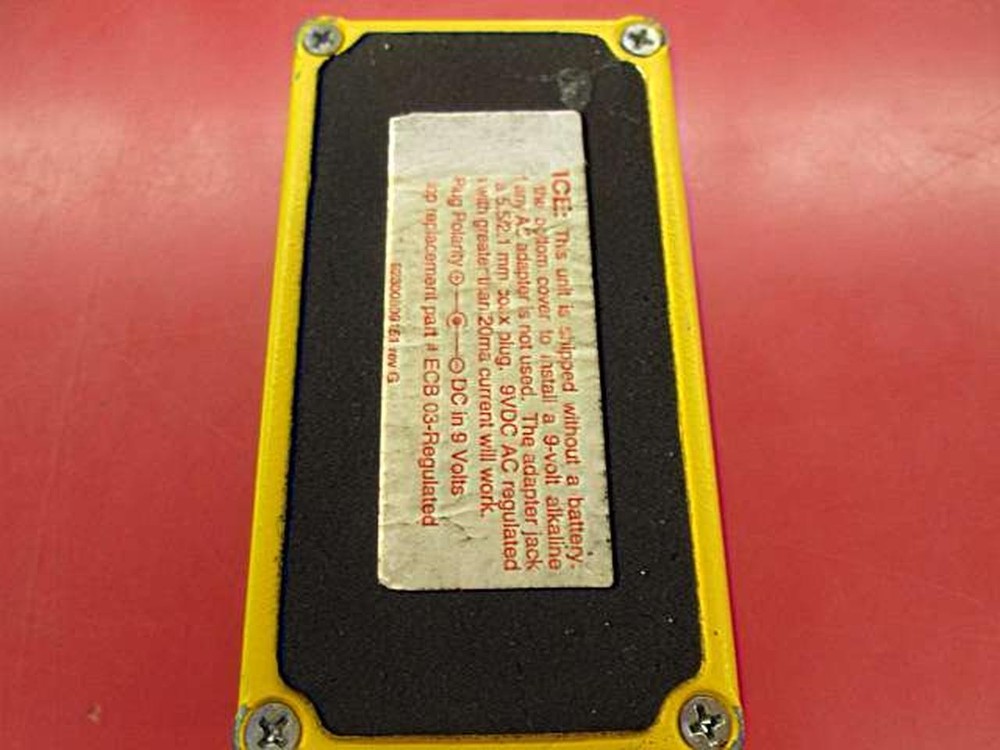 ICE: This unit is shipped without a battery-
the bottom cover to install a 9-volt alkaline
any AC adapter is not used. The adapter jack
a 5.5/2.1 mm coax plug. 9VDC AC regulated
with greater than 20ma current will work.
Plug Polarity ⊕—⊙—⊖ DC in 9 Volts
op replacement part # ECB 03-Regulated
rev G